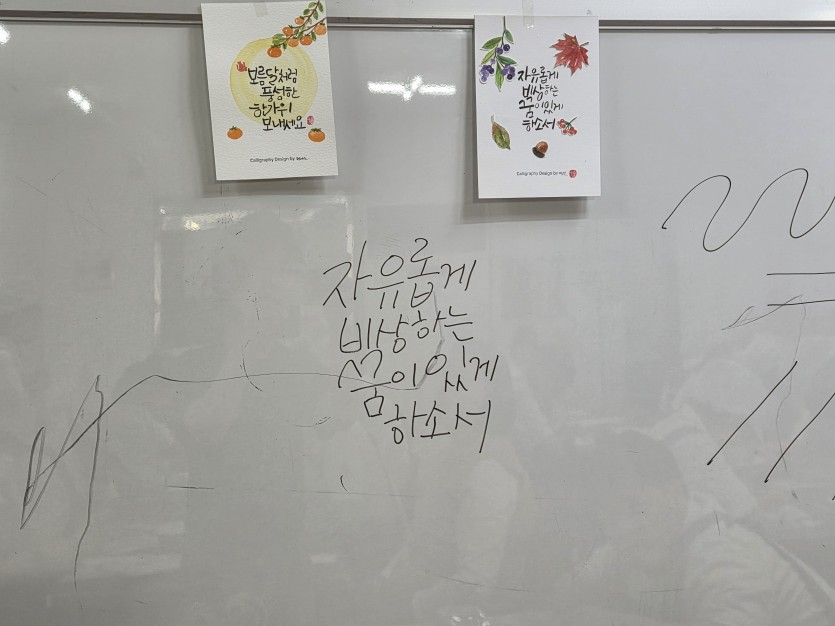 보름달처럼
풍성한
한가위
보내세요
Calligraphy Design by
자유롭게
빛상하는
꿈이있게
하소서
Calligraphy Design by
자유롭게
빛상하는
꿈이있게
하소서